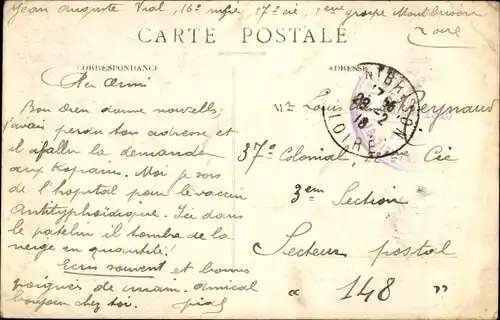 Jean Auguste Vial, 16e infie, 27e cie, 2ème groupe Montbrison
Loire
CARTE POSTALE
CORRESPONDANCE
ADRESSE
Cher Ami
Bon Dieu donne nouvelles,
j'avais perdu ton adresse et
il a fallu la demander
aux Moi je sors
de l'hopital pour le vaccin
Antityphoïdique. Ici dans
le patelin il tombe de la
neige en quantité!
Ecris souvent et bonne
poignée de main. Amical
bonjour chez toi. Vial
MONTBRISON
28-2
16
LOIRE
Mr Louis Reynaud
37e Colonial, Cie
3em Section
Secteur postal
" 148 "